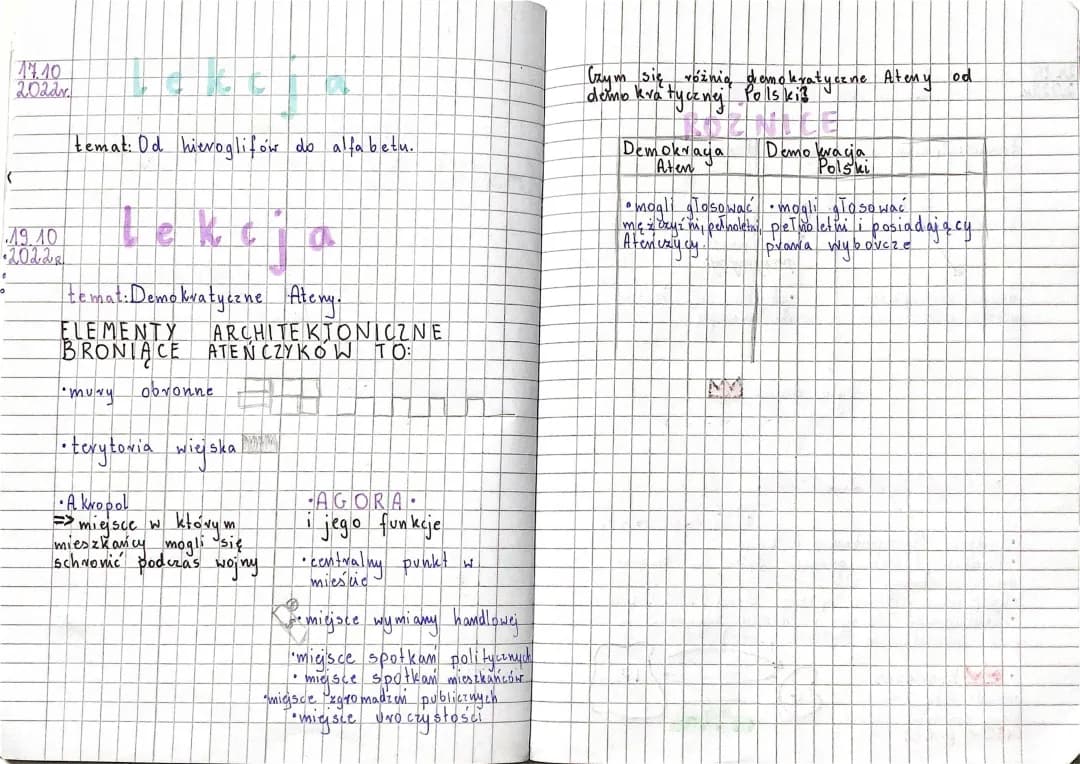 17.10
2022r.
lekcja
temat: Od hieroglifów do alfabetu.
19.10
2022r.
lekcja
temat: Demokratyczne Ateny.
ELEMENTY ARCHITEKTONICZNE
BRONIĄCE ATEŃCZYKÓW TO:
•mury obronne
•terytoria wiejska
•Akropol
=> miejsce w którym
mieszkańcy mogli się
schronić podczas wojny
•AGORA•
i jego funkcje
•centralny punkt w
mieście
•miejsce wymiany handlowej
•miejsce spotkań politycznych
•miejsce spotkań mieszkańców
•miejsce zgromadzeń publicznych
•miejsce uroczystości
Czym się różnią demokratyczne Ateny od
demokratycznej Polski?
RÓŻNICE
Demokracja
Aten
Demokracja
Polski
•mogli głosować
mężczyźni, pełnoletni,
Ateńczycy.
•mogli głosować
pełnoletni i posiadający
prawa wyborcze